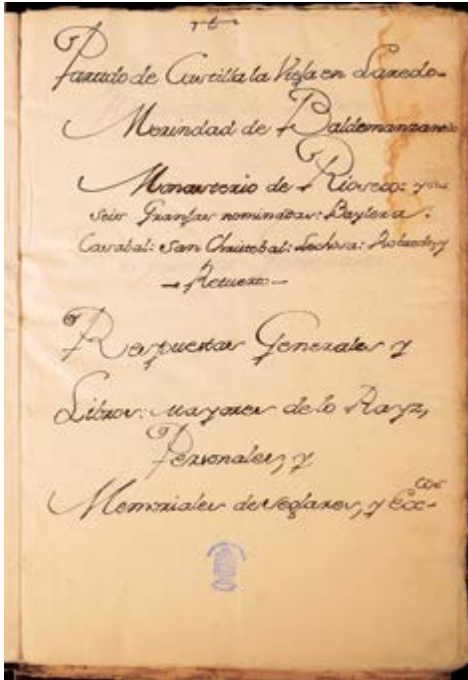 Partido de Castilla la Vieja en Laredo
Merindad de Baldemanzanedo
Monasterio de Rioseco: y sus
seis Granjas nominadas: Baylera:
Casabal: San Christobal: Lechosa: Robredo, y
Retuerto
Respuestas Generales y
Libros: mayores de lo Rayz,
Personales, y
Memoriales de seglares, y Ecc-
cos